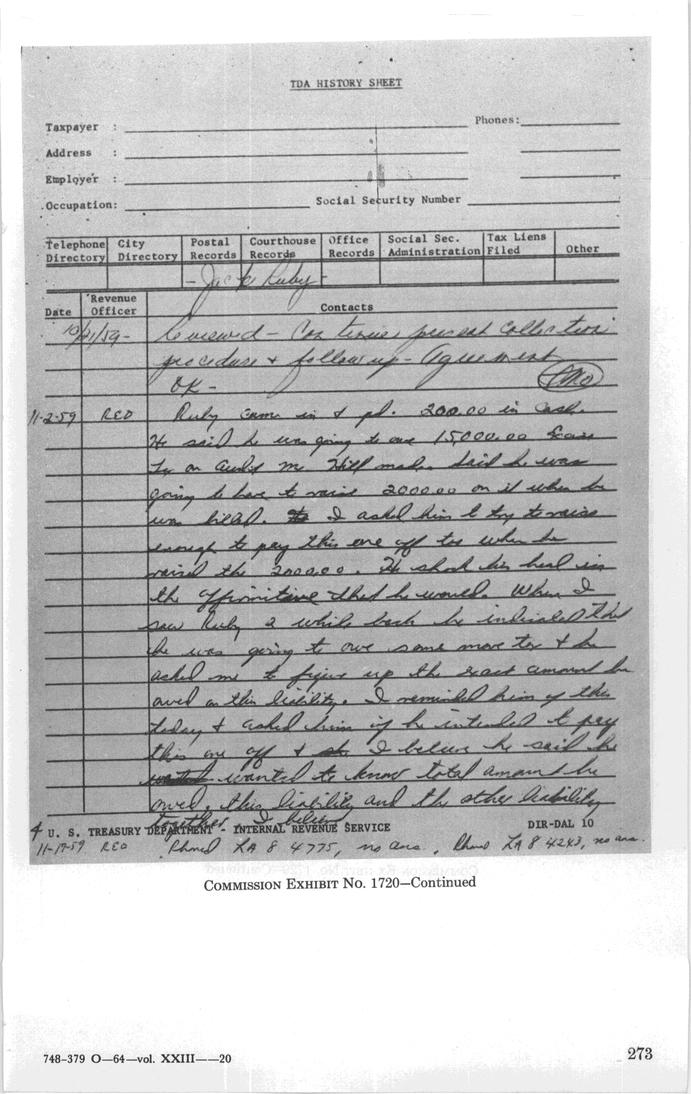 TDA HISTORY SHEET
Taxpayer : Phones:
Address :
Employer :
Occupation: Social Security Number
Telephone Directory City Directory Postal Records Courthouse Records Office Records Social Sec. Administration Tax Liens Filed Other
- Jack Ruby -
Date Revenue Officer Contacts
10/21/59- Reviewed - Continue present collection
procedure & follow up - Agreement
OK -
11-2-59 REO Ruby came in & pd. 200.00 in cash.
He said he was going to owe 15,000.00
on Audit Mr. Hill made. Said he was
going to have to raise 2000.00 on it when he
was billed. I asked him to try to raise
enough to pay this one off too when he
raised the 2000.00. He shook his head in
the affirmitive that he would. When I
saw Ruby a while back he indicated that
he was going to owe some more tax & he
asked me to figure up the exact amount he
owed on this liability. I reminded him of this
today & asked him if he intended to pay
this one off & I believe he said he
wanted to know total amount he
owed, this liability and the other liability
together I believe
4 U. S. TREASURY DEPARTMENT - INTERNAL REVENUE SERVICE DIR-DAL 10
11-17-59 REO Phoned LA 8 4775, no ans., Phoned LA 8 4243, no ans.
COMMISSION EXHIBIT NO. 1720—Continued
748-379 O—64—vol. XXIII——20
273